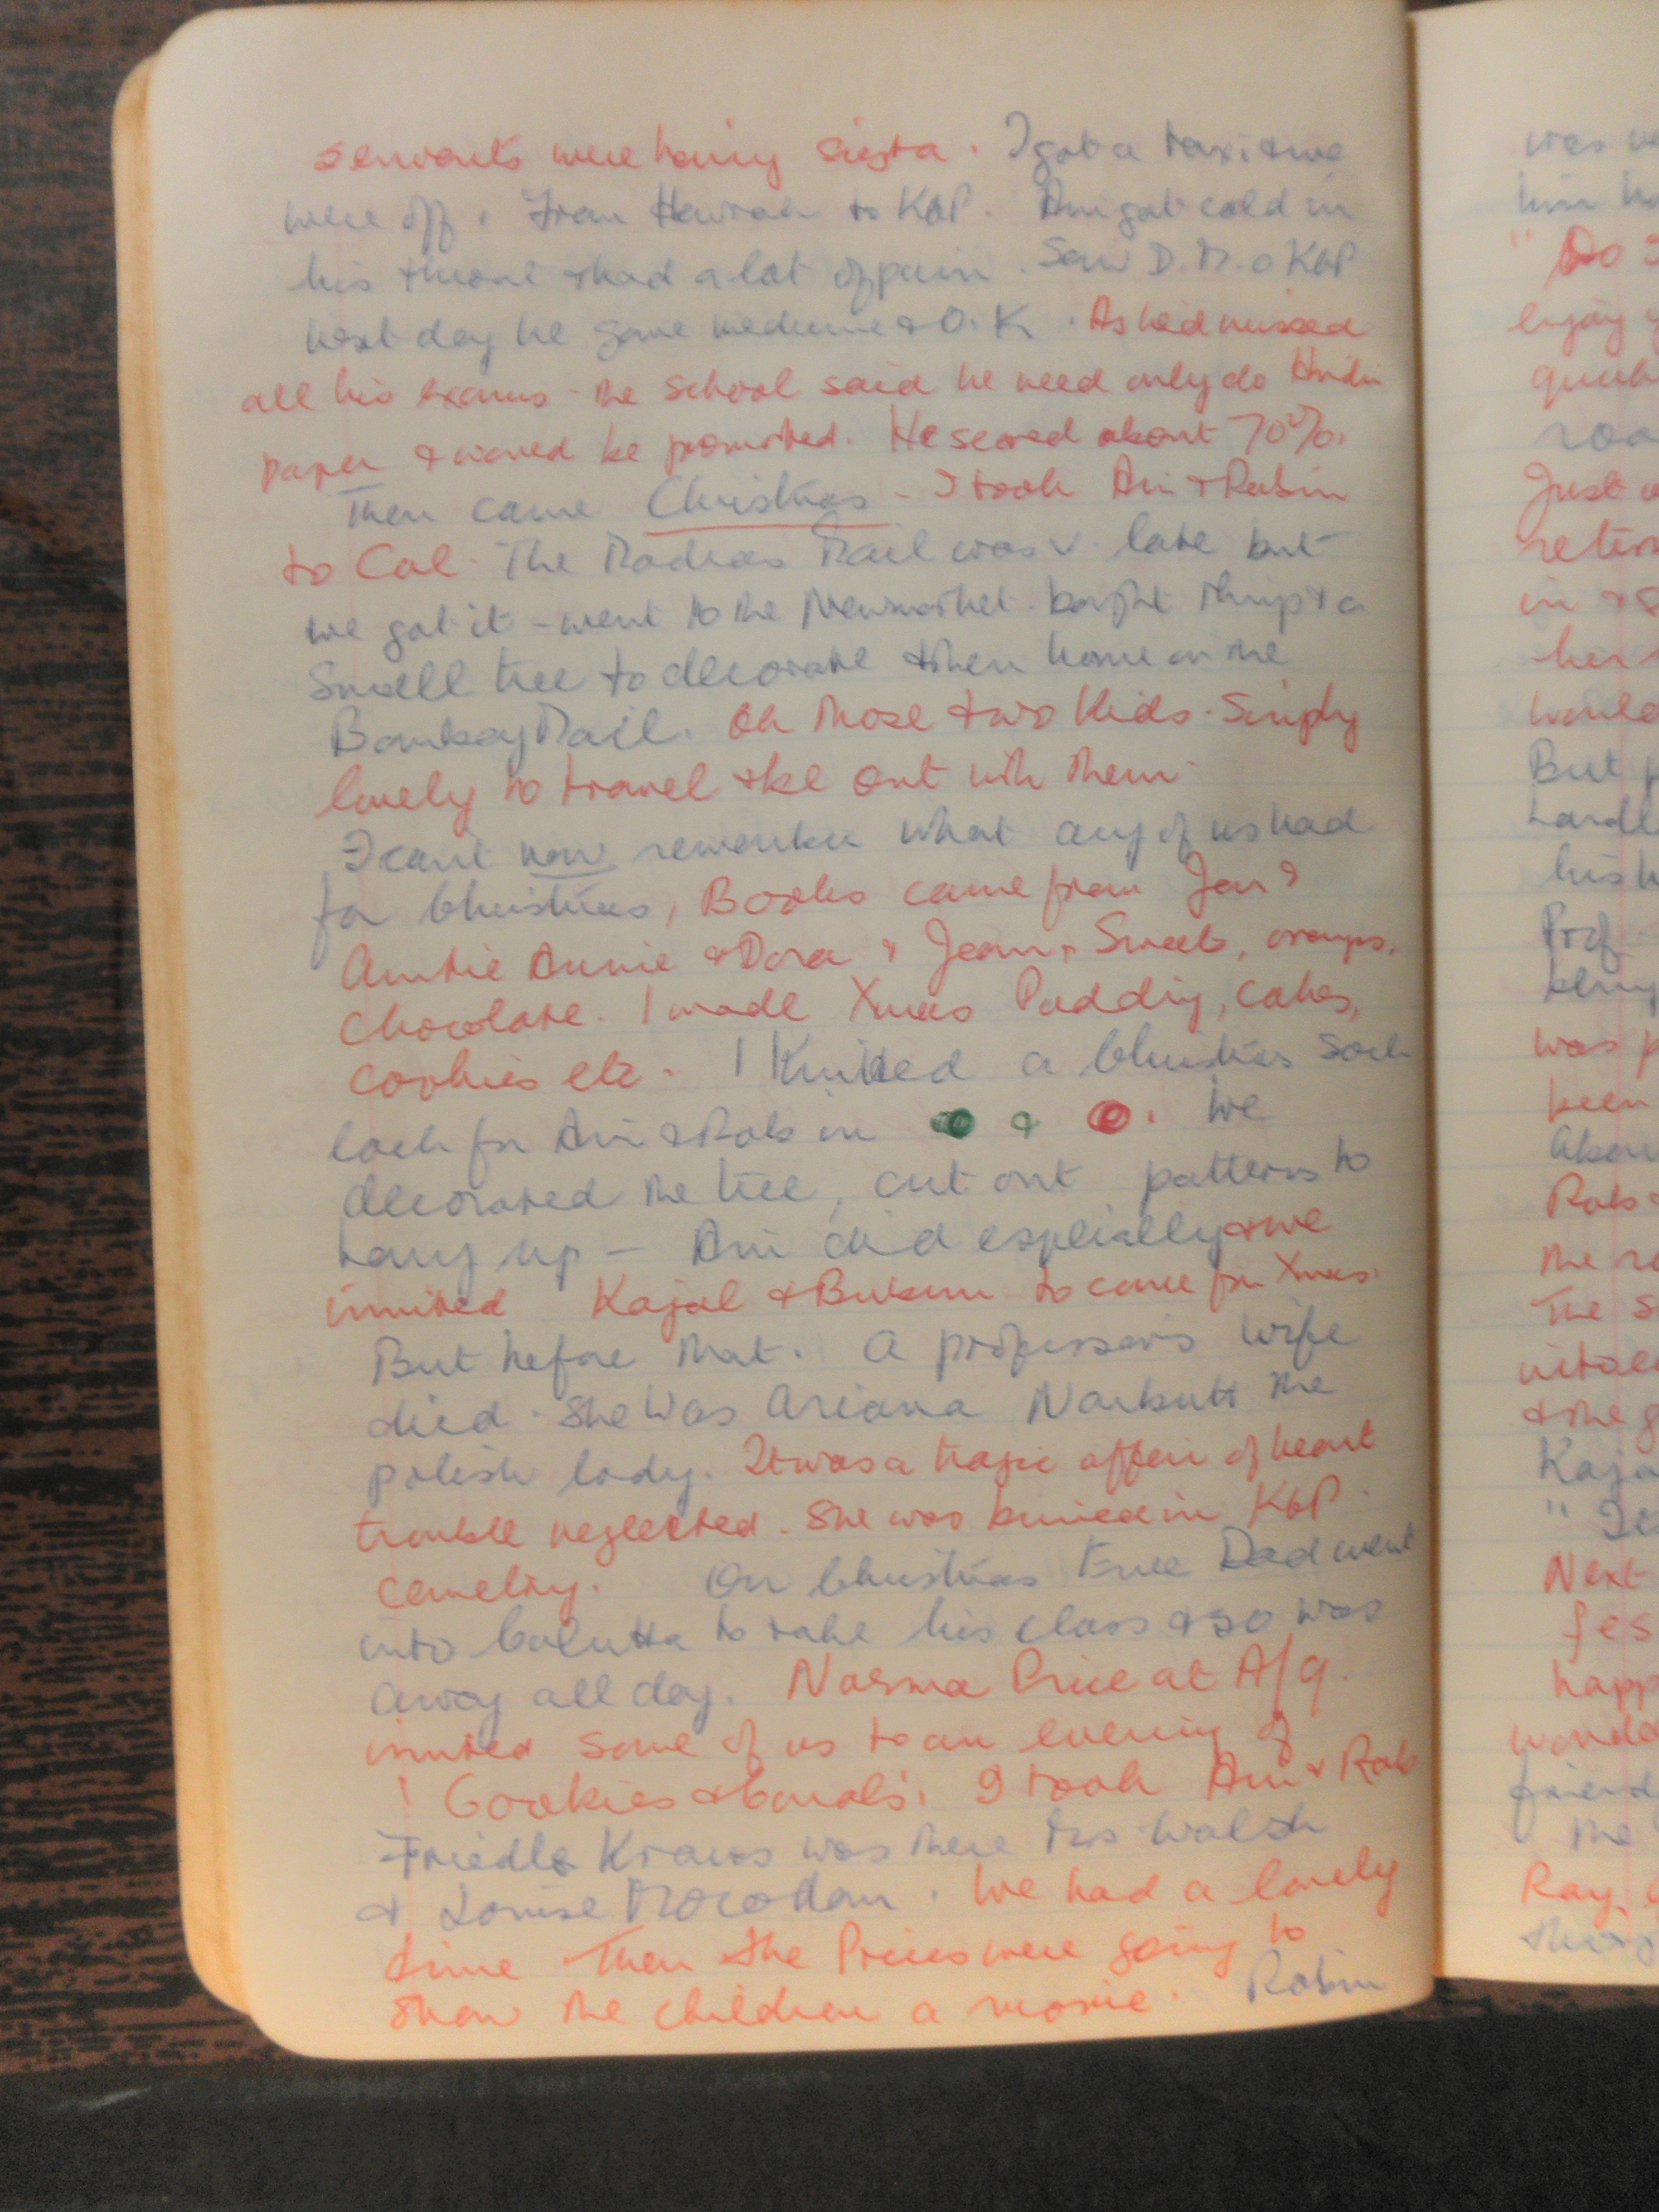 servants were having siesta. I got a taxi & we
were off. From Howrah to KGP. Ami got cold in
his throat & had a lot of pain. Saw D.M.O KGP
next day he gave medicine & O.K. As he'd missed
all his exams - the school said he need only do Hindi
paper & would be promoted. He scored about 70%.
Then came Christmas - I took Ami & Robin
to Cal. The Madras Mail was v. late but
we got it - went to the Newmarket. bought things & a
small tree to decorate & then home on the
Bombay Mail. Oh those two kids. Simply
lovely to travel & be out with them.
I cant now remember what any of us had
for Christmas, Books came from Jon &
Auntie Annie & Dora & Jean, Sweets, oranges,
Chocolate. I made Xmas Pudding, cakes,
cookies etc. I knitted a Christmas sock
each for Ami & Rob in & . We
decorated the tree, cut out patterns to
hang up - Ami did especially & we
invited Kajal & to come for Xmas.
But before that. A professor's wife
died. She was Ariana Narbutt the
polish lady. It was a tragic affair of heart
trouble neglected. She was buried in KGP
cemetry. On Christmas Eve Dad went
into Calcutta to take his class & so was
away all day. Norma Price at A/9
invited some of us to an evening of
'Cookies & Carols'. I took Ami & Rob
Friedle Kraus was there Mrs Walsh
& Louise. We had a lovely
time Then the Prices were going to
show the children a movie. Robin
was
him
Do
enjoy
Just
in &
her
would
But
his
Prof.
was
been
Rob
the
The
& the
Next
the
Ray